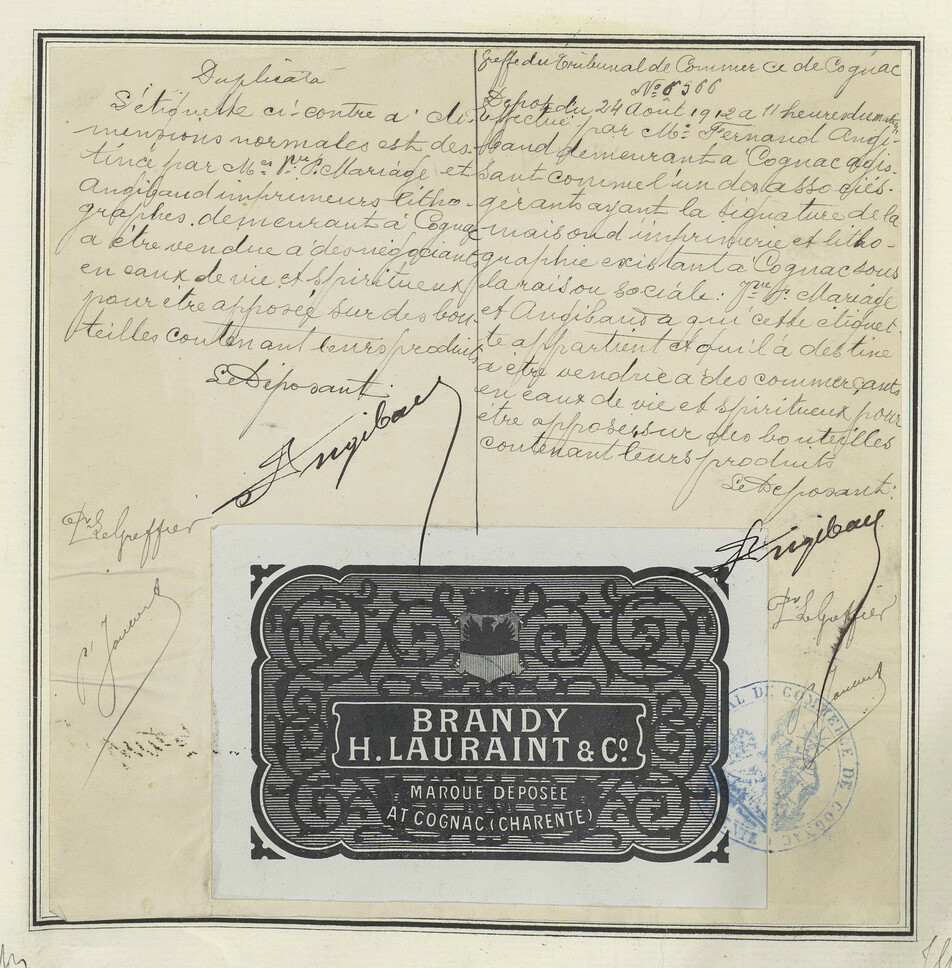 Duplicata
L'étiquette ci-contre a' di-
mensions normales est des-
tinée par Mrs Pre P. Mariage et
Angibaud imprimeurs litho-
graphes demeurant a' Cognac
a être vendue a' des négociants
en eaux de vie et spiritueux
pour être apposée sur des bou-
teilles contenant leurs produits
Le Déposant:
Angibaud
Pr Le Greffier
Greffe du Tribunal de Commerce de Cognac
No 6566
Dépot du 24 Août 1912 a 11 heures du matin
Effectué par Mr Fernand Angi-
baud demeurant a' Cognac agis-
sant comme l'un des associés-
gérants ayant la signature de la
maison d'imprimerie et litho-
graphie existant a' Cognac sous
la raison sociale: Pre P. Mariage
et Angibaud a qui cette étiquet-
te appartient et qu'il a destine
a être vendue a des commerçants
en eaux de vie et spiritueux pour
être apposée sur des bouteilles
contenant leurs produits
Le Déposant:
Angibaud
Pr Le Greffier
BRANDY
H. LAURAINT & Co.
MARQUE DÉPOSÉE
AT COGNAC (CHARENTE)
TRIBUNAL DE COMMERCE DE COGNAC